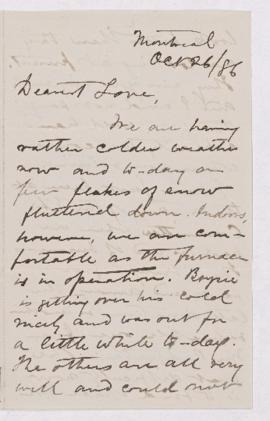 Montreal
Oct 26/86
Dearest Love,
We are having
rather colder weather
now and to-day a
few flakes of snow
fluttered down. Indoors,
however, we are com-
fortable as the furnace
is in operation.
is getting over his cold
nicely and was out for
a little while to-day.
The others are all very
well and could not